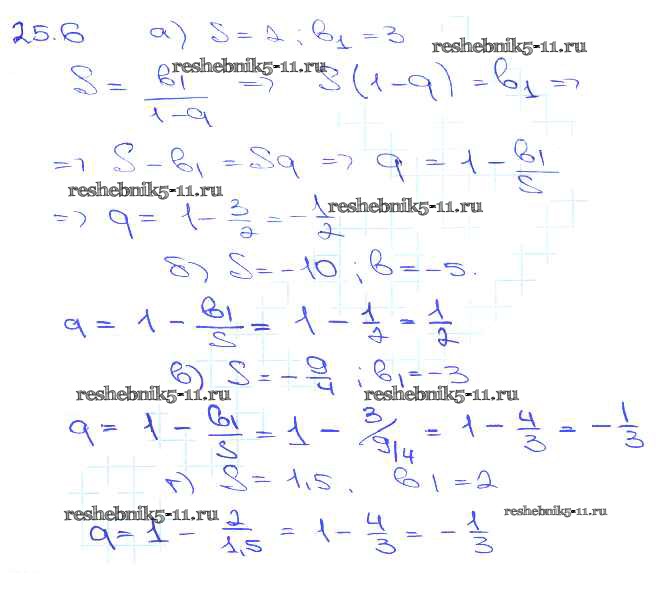 25.6 а) S = 2 ; b₁ = 3
reshebnik5-11.ru
reshebnik5-11.ru
S = b₁/(1-q) => S(1-q) = b₁ =>
=> S - b₁ = Sq => q = 1 - b₁/S
reshebnik5-11.ru
reshebnik5-11.ru
=> q = 1 - 3/2 = -1/2
б) S = -10 ; b = -5.
q = 1 - b₁/S = 1 - 1/2 = 1/2
в) S = -9/4 ; b₁ = -3
reshebnik5-11.ru
reshebnik5-11.ru
q = 1 - b₁/S = 1 - 3/9/4 = 1 - 4/3 = -1/3
г) S = 1,5. b₁ = 2
reshebnik5-11.ru
reshebnik5-11.ru
q = 1 - 2/1,5 = 1 - 4/3 = -1/3